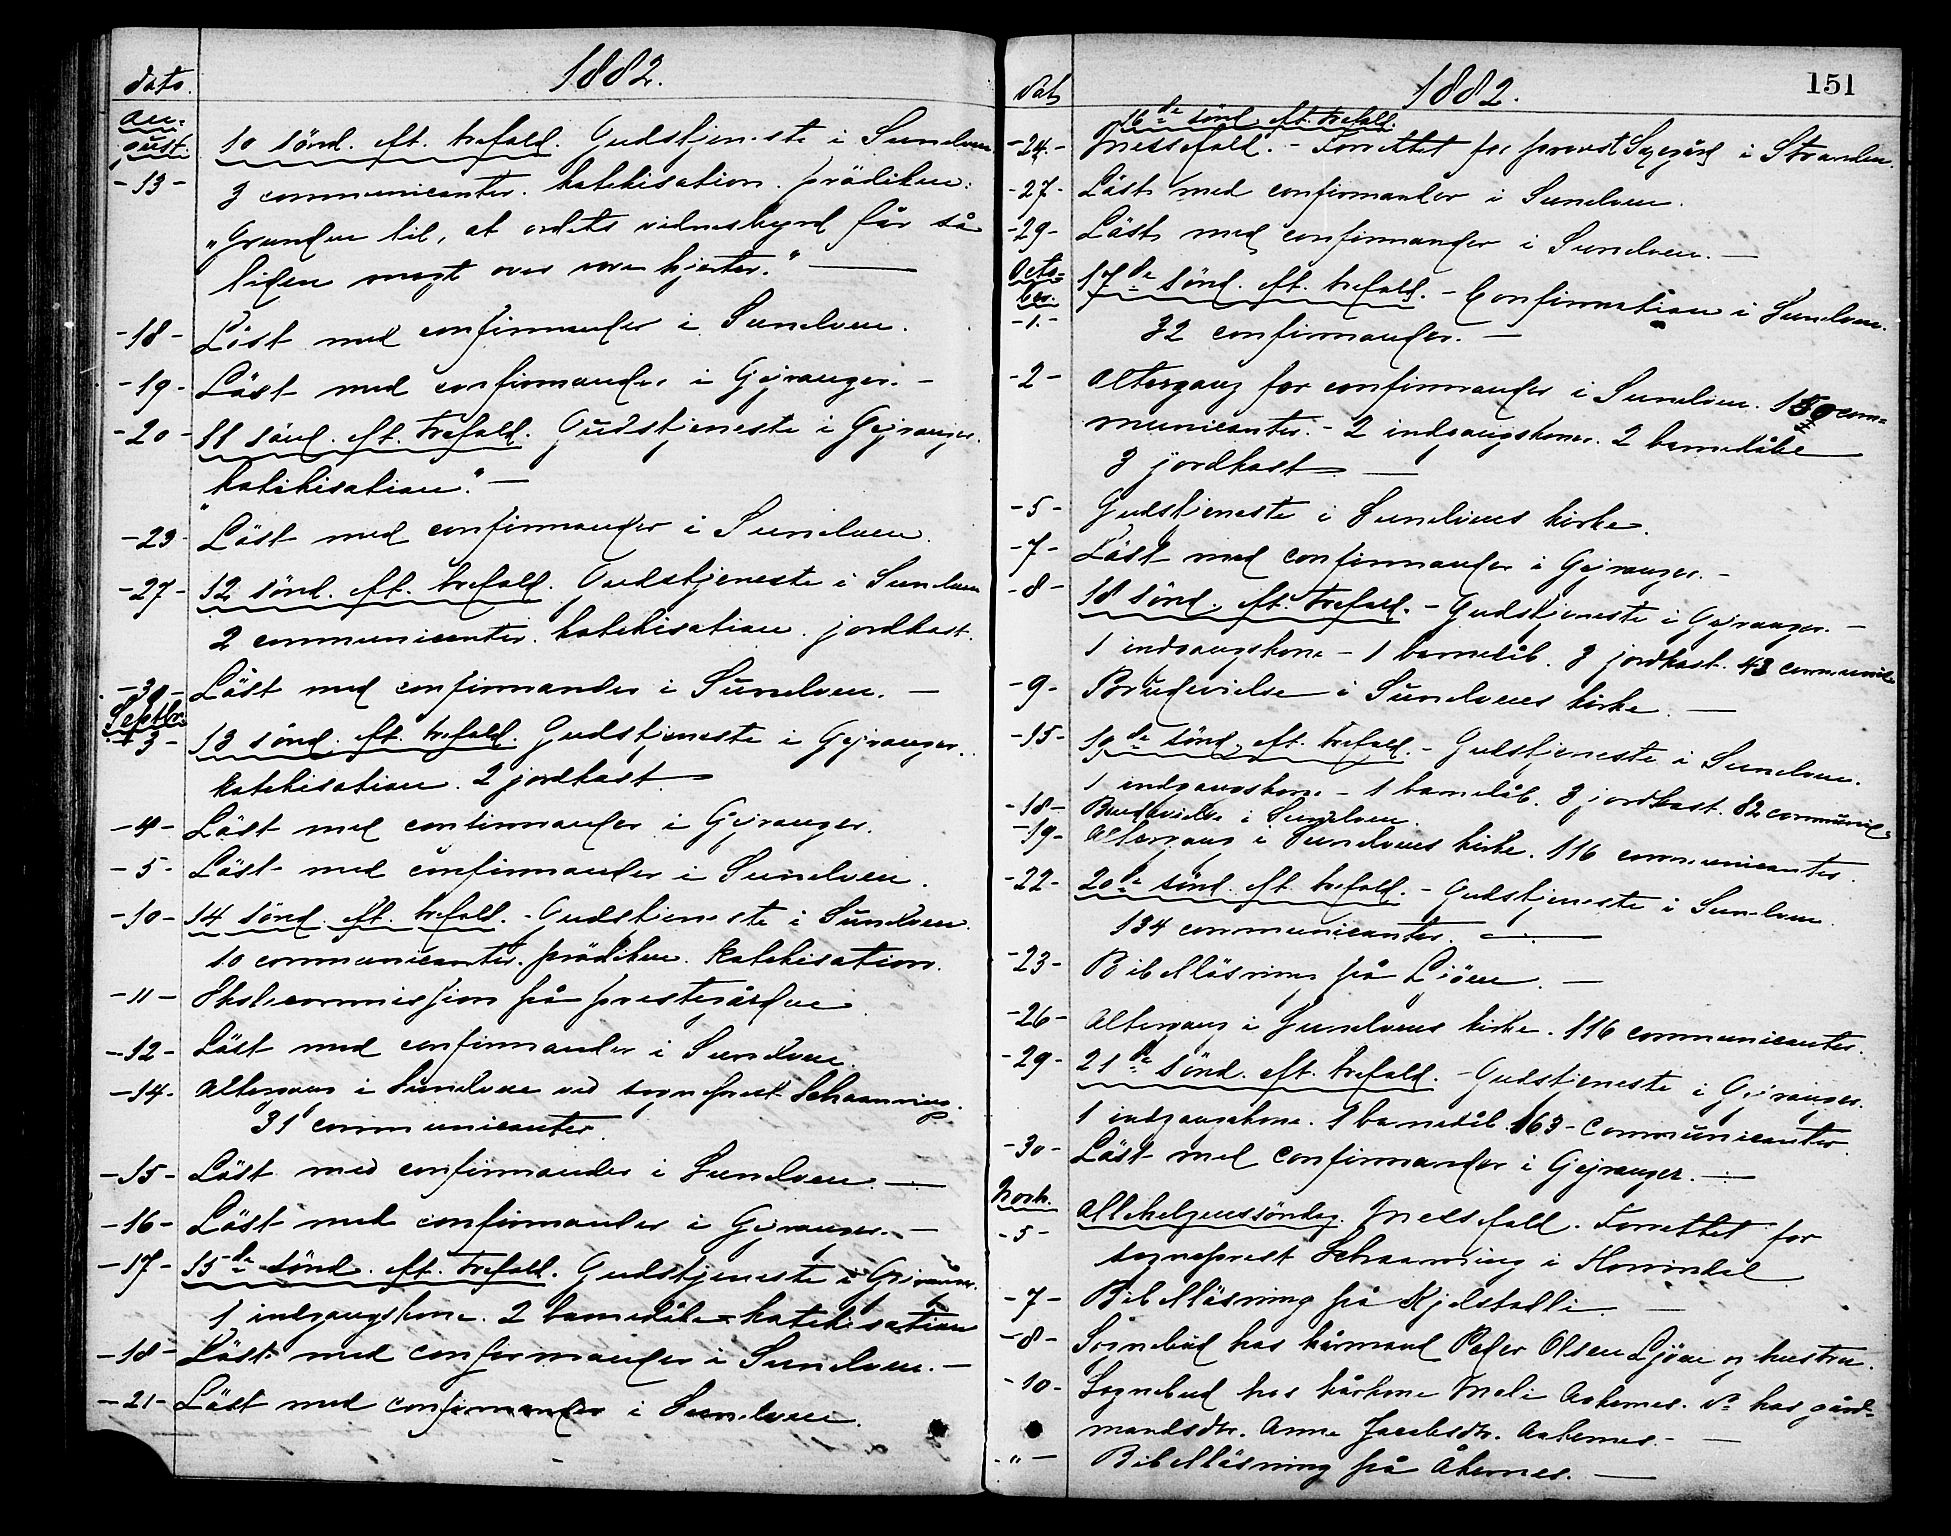 dato.
1882.
au=
gust.
10 sönd. eft. trefold. Gudstjeneste i Sunelven
-13- 3 communicanter. katekisation. prädiken:
"Grunden til, at ordets vidnesbyrd får så
liden magt over vore hjerter." —
-18- Läst med confirmander i Sunelven.
-19- Läst med confirmander i Gejranger. -
-20- 11 sönd. eft. trefold. Gudstjeneste i Gejranger.
"katekisation." —
-23- Läst med confirmander i Sunelven.
-27- 12 sönd. eft. trefold. Gudstjeneste i Sunelven
2 communicanter. katekisation. jordkast.
-30- Läst med confirmander i Sunelven. —
Septbr.
-3- 13 sönd. eft. trefold. Gudstjeneste i Gejranger.
katekisation. 2 jordkast —
-4- Läst med confirmander i Gejranger.
-5- Läst med confirmander i Sunelven.
-10- 14 sönd. eft. trefold. - Gudstjeneste i Sunelven.
10 communicanter. prädiken. katekisation.
-11- Skolecommission på prestegården.
-12- Läst med confirmander i Sunelven.
-14- Altergang i Sunelven ved sogneprest Schaanning.
31 communicanter.
-15- Läst med confirmander i Sunelven. —
-16- Läst med confirmander i Gejranger. —
-17- 15de sönd. eft. trefold. Gudstjeneste i Gejranger.
1 indgangskone. 2 barnedåbe - katekisation
-18- Läst med confirmander i Sunelven. —
-21- Läst med confirmander i Sunelven.
Dat
1882.
151
16de sönd. eft. trefold.
-24- Messefald. - Forrettet for provst i Stranden.
-27- Läst med confirmander i Sunelven.
-29- Läst med confirmander i Sunelven. —
Octo=
ber.
-1.- 17de sönd. eft. trefold. - Confirmation i Sunelven.
32 confirmander. —
-2- Altergang for confirmander i Sunelven. 150 com=
municanter. - 2 indgangskoner. 2 barnedåbe
3 jordkast —
-5- Gudstjeneste i Sunelvens kirke.
-7- Läst med confirmander i Gejranger. -
-8- 18 sönd. eft. trefold. - Gudstjeneste i Gejranger. —
1 indgangskone - 1 barnedåb. 3 jordkast. 43 communic.
-9- Brudevielse i Sunelvens kirke. —
-15- 19de sönd. eft. trefold. - Gudstjeneste i Sunelven.
1 indgangskone - 1 barnedåb. 3 jordkast. 82 communic.
-18- Brudevielse i Sunelven.
-19- Altergang i Sunelvens kirke. 116 communicanter.
-22- 20de sönd. eft. trefold. - Gudstjeneste i Sunelven.
134 communicanter. —
-23- Bibellläsning på Ljöen. —
-26- Altergang i Sunelvens kirke. 116 communicanter.
-29- 21de sönd. eft. trefold. - Gudstjeneste i Gejranger.
1 indgangskone. 1 barnedåb. 163 - Communicanter.
-30- Läst med confirmander i Gejranger. —
Novb.
-5- Allehelgenssöndag. Messefald. Forrettet for
sogneprest Schaanning i Hornindal
-7- Bibellläsning på Kjelstadli —
-8- Sognebud hos kårmand Peder Olsen Ljöen og hustru.
-10- Sognebud hos kårkone Mali Aakernes. do hos gård=
mandsdtr. Anne Jacobsdtr. Aakernes. —
- " - Bibellläsning på Åkernes. —